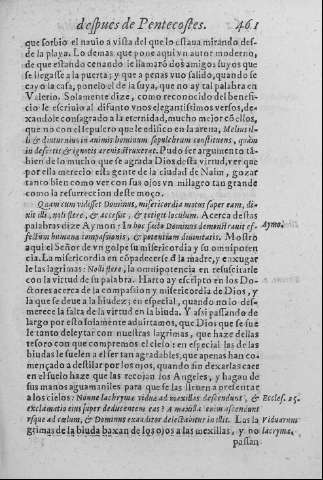 despues de Pentecostes. 461
que sorbio el nauio a vista del que lo estaua mirando des-
de la playa. Lo demas que pone aqui vn autor moderno,
de que estando cenando le llamarõ dos amigos suyos que
se llegasse a la puerta; y que a penas vuo salido, quando se
cayo la casa, ponelo el de la suya, que no ay tal palabra en
Valerio. Solamente dize, como reconocido del benefi-
cio le escriuio al difunto vnos elegantissimos versos, de-
xandole consagrado a la eternidad, mucho mejor cõ ellos,
que no con el sepulcro que le edifico en la arena, Melius il-
li & diuturnius in animis hominum sepulchrum constituens, quàm
in desertis & ignotis arenis struxerat. Pudo ser argumento tã-
bien de lo mucho que se agrada Dios desta virtud, ver que
por ella merecio esta gente de la ciudad de Naim, gozar
tanto bien como ver con sus ojos vn milagro tan grande
como la resurreccion deste moço.
Quam cum vidisset Dominus, misericordia motus super eam, di-
xit illi, noli flere, & accessit, & tetigit loculum. Acerca destas
palabras dize Aymon: In hoc facto Dominus demonstrauit ef-
Aymo.
fectum humanæ compassionis, & potentiam diuinitatis. Mostrò
aqui el Señor de vn golpe su misericordia y su omnipoten
cia. La misericordia en cõpadecerse d la madre, y enxugar
le las lagrimas: Noli flere, la omnipotencia en resuscitarle
con la virtud de su palabra. Harto ay escripto en los Do-
ctores acerca de la compassion y misericordia de Dios, y
la que se deue a la biudez; en especial, quando no lo des-
merece la falta de la virtud en la biuda. Y assi passando de
largo por esto solamente aduirtamos, que Dios que se sue
le tanto deleytar con nuestras lagrimas, que haze dellas
tesoro con que compremos el cielo: en especial las de las
biudas le suelen a el ser tan agradables, que apenas han co-
mençado a destilar por los ojos, quando sin dexarlas caer
en el suelo haze que las recojan los Angeles, y hagan de
sus manos aguamaniles para que se las lleuen a presentar
a los cielos: Nonne lachrymæ viduæ ad maxillas descendunt, &
Eccles. 35.
exclamatio eius super deducentem eas? a maxilla enim ascendunt
vsque ad cœlum, & Dominus exauditor delectabitur in illis. Las la
Viduarum
grimas de la biuda baxan de los ojos a las mexillas, y no
lacrymæ.
passan